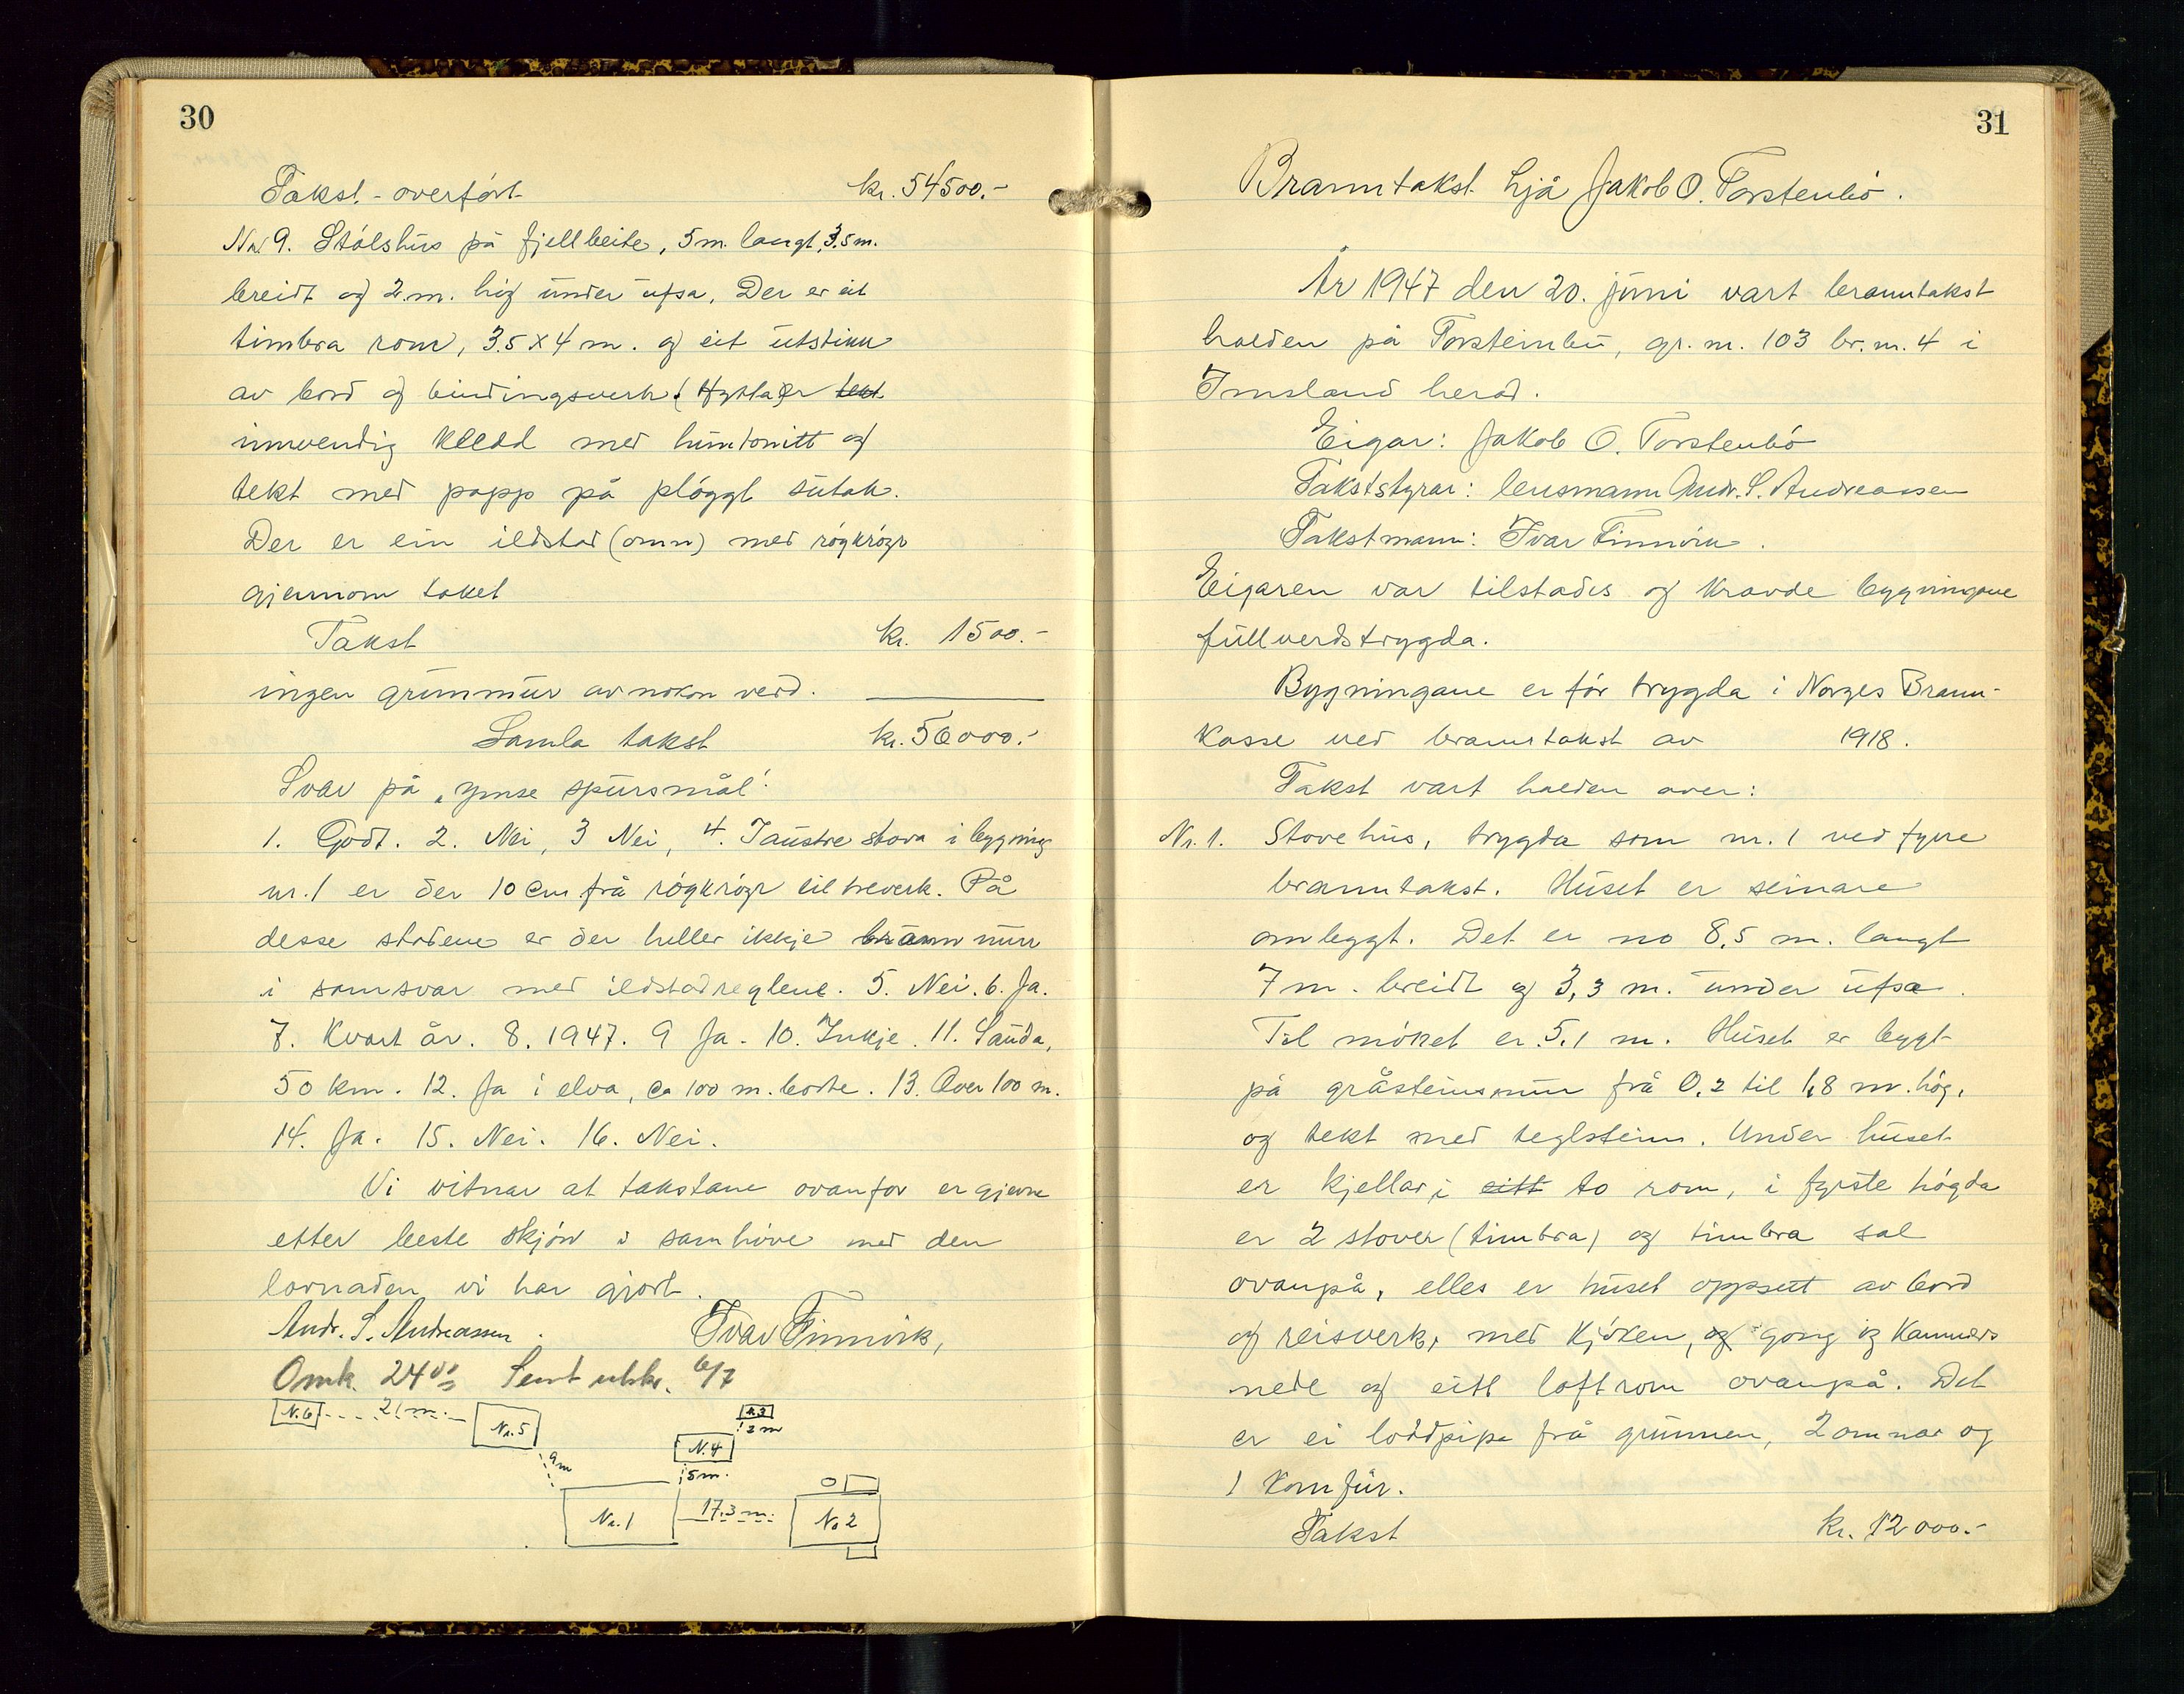 30
Takst - overført kr. 54500.-
Nr. 9. Stølshus på fjellbeite, 5 m. langt, 3.5 m.
breidt og 2. m. høg under ufsa. Der er eit
timbra rom, 3.5 x 4 m. og eit utstikk
av bord og bindingsverk. Hytta er tekt
innvendig kledd med huntonitt og
tekt med papp på pløggt sutak.
Der er ein ildstad (omn) med røykrøyr
gjennom taket
Takst kr. 1500.-
ingen grunnmur av nokon verd.
Samla takst kr. 56000.-
Svar på „ymse spursmål":
1. Godt. 2. Nei, 3 Nei, 4. I austre stova i bygning
nr. 1 er der 10 cm frå røykrøyr til treverk. På
desse stadene er der heller ikkje brannmur
i samsvar med ildstadreglene. 5. Nei. 6. Ja.
7. Kvart år. 8. 1947. 9 Ja. 10. Inkje. 11. Sauda,
50 km. 12. Ja i elva, ca 100 m. borte. 13. Over 100 m.
14. Ja. 15. Nei. 16. Nei.
Vi vitnar at takstane ovanfor er gjevne
etter beste skjøn i samhøve med den
lovnaden vi har gjort.
Andr. S. Andreassen. Ivar Finnvik,
Omk. 24 Sent utskr. 6/7
Nr. 6 21 m. Nr. 5 Nr. 3
2 m
9 m Nr. 4
5 m.
Nr. 1 17.3 m. No 2
31
Branntakst hjå Jakob O. Torstenbø.
År 1947 den 20. juni vart branntakst
halden på Torsteinbu, gr. nr. 103 br. nr. 4 i
Imsland herad.
Eigar: Jakob O. Torstenbø
Takststyrar: lensmann Andr. S. Andreassen
Takstmann: Ivar Finnvik.
Eigaren var tilstades og kravde bygningane
fullverdstrygda.
Bygningane er før trygda i Norges Brann-
kasse ved branntakst av 1918.
Takst vart halden over:
Nr. 1. Stovehus, trygda som nr. 1 ved fyrre
branntakst. Huset er seinare
ombyggt. Det er no 8,5 m. langt
7 m. breidt og 3,3 m. under ufsa.
Til mønet er 5,1 m. Huset er bygt
på gråsteinsmur frå 0,2 til 1,8 m. høg,
og tekt med teglstein. Under huset
er kjellar i eitt to rom, i fyrste høgda
er 2 stover (timbra) og timbra sal
ovanpå, elles er huset oppsett av bord
og reisverk, med kjøken, og gong og kammers
nede og eitt loftrom ovanpå. Det
er ei loddpipe frå grunnen, 2 omnar og
1 komfur.
Takst kr. 12000.-